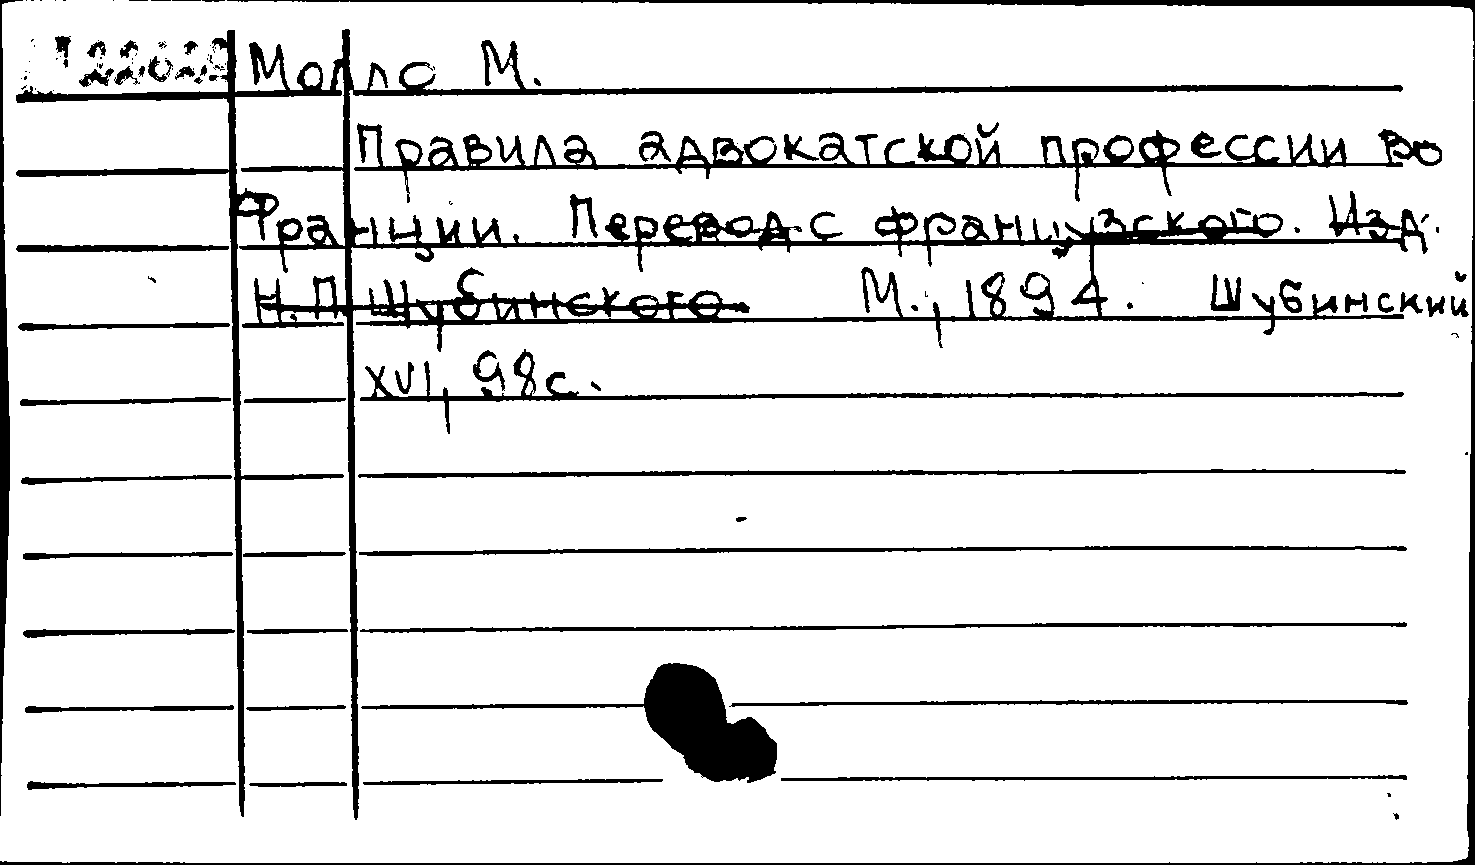 Молло М.
Правила адвокатской профессии во
Франции. Перевод с французского. Изд.
Н.П. Шубинского М., 1894. Шубинский
XVI, 98с.